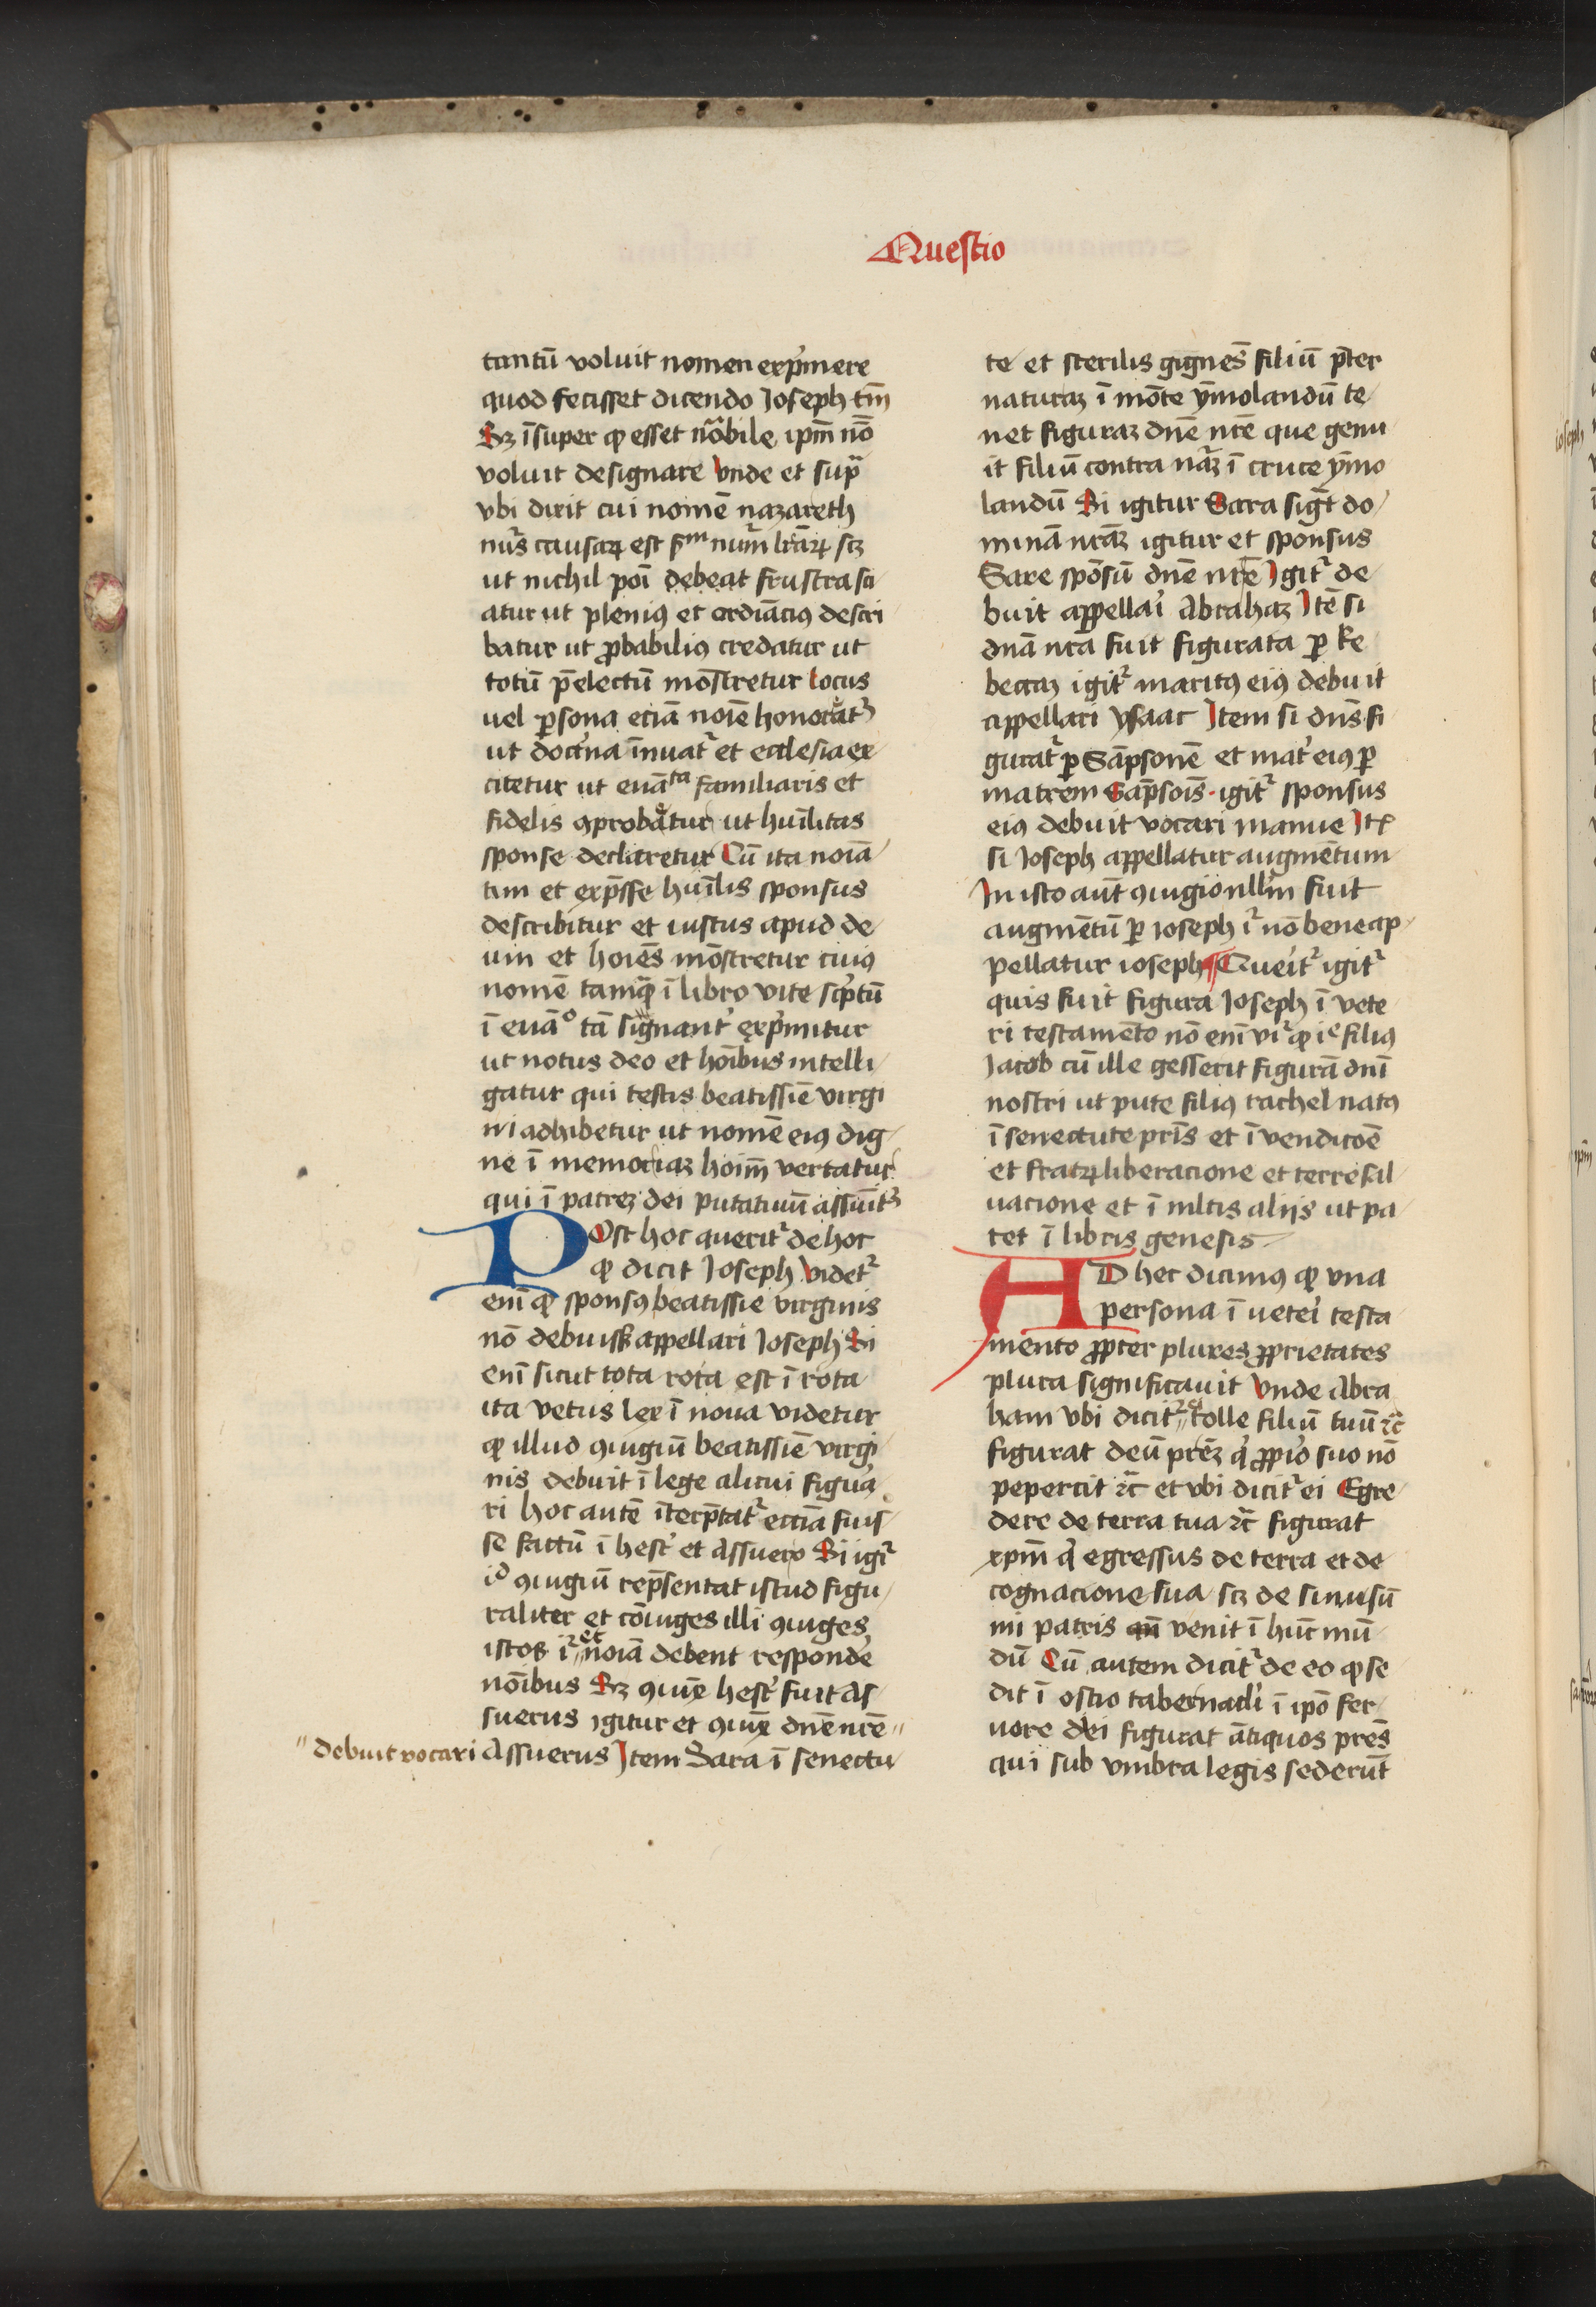 Questio
tantū voluit nomen exp̄mere
quod fecisset dicendo Joseph tm̄
Sꝫ īsuper ꝙ esset nōbile ipm̄ nō
voluit designare vnde et sup̄
vbi dixit cui nomē nazareth
ut nichil poī debeat frustra sci
atur ut pleniꝰ et ordīaciꝰ descri
batur ut ꝓbabiliꝰ credatur ut
totū p̄electū mōstretur locus
uel ꝑsona eciā noīe honorat᷑
ut doct͛na īnuat᷑ et ecclesia ex
citetur ut euāta familiaris et
fidelis ꝯprobatur ut huīlitas
sponse declaretur Cū ita noīa
tim et exp̄sse huīlis sponsus
describitur et iustus apud de
um et hoīēs mōstretur cuiꝰ
nomē tamq̄ ī libro vite sc͛ptū
ī euāo tā signant͛ exp͛mitur
ut notus deo et hoībus intelli
gatur qui testis beatissīe virgi
ni adhibetur ut nomē eiꝰ dig
ne ī memoriaꝫ hoīm̄ vertatur
qui ī patreꝫ dei putatiuū assūit᷑
Post hoc querit᷑ de hoc
ꝙ dicit Joseph videt᷑
enī ꝙ sponsꝰ beatissīe virginis
nō debuisset appellari Joseph Si
enī sicut tota rota est ī rota
ita vetus lex ī noua videtur
ꝙ illud ꝯiugiū beatissīe virgi
nis debuit ī lege alicui figura
ri hoc autē īterp̄tat᷑ ecc̄ia fuis
se factū ī hest͛ et Assuero Si igi᷑
id ꝯiugiū rep̄sentat istud figu
raliter et cōiuges illi ꝯiuges
istos i᷑ et noīa debent respond͛e
nōibus Sꝫ ꝯiūx hest͛ fuit As
suerus igitur et ꝯiūx dn̄e nr̄e
debuit vocari Assuerus Item Sara ī senectu
te et sterilis gignēs filiū p̄ter
naturaꝫ ī mōte ymolandū te
net figuraꝫ dn̄e nr̄e que genu
it filiū contra nāꝫ ī cruce ymo
landū Si igitur Sara sigt̄ do
minā nrāꝫ igitur et sponsus
Sare spōsū dn̄e nr̄e Igit᷑ de
buit appellai͛ Abrahaꝫ Itē si
dn̄a nr̄a fuit figurata ꝑ Re
beccaꝫ igit᷑ maritꝰ eiꝰ debuit
appellari ysaac Item si dn̄s fi
gurat᷑ ꝑ Sāpsonē et mat͛ eiꝰ ꝑ
matrem Sāpsoīs igit᷑ sponsus
eiꝰ debuit vocari manue Itē
si Joseph appellatur augmētum
In isto aūt ꝯiugio nll͛m fuit
augmētū ꝑ ioseph i᷑ nō bene ap
pellatur ioseph ¶ Quei͛t᷑ igit᷑
quis fuit figura Joseph ī vete
ri testamēto nō enī vi᷑ ꝙ ie filiꝰ
Jacob cū ille gesserit figurā dnī
nostri ut pute filiꝰ rachel natꝰ
ī senectute pr̄is et ī vendicōē
et fratꝝ liberacione et terre sal
uacione et ī ml̄tis alijs ut pa
tet ī libris genesis
AD hec dicimꝰ ꝙ vna
persona ī vetei͛ testa
mento ꝓpter plures ꝓprietates
plura significauit vnde Abra
ham vbi dicit᷑ ei tolle filiū tuū ⁊c̄
figurat deū prēꝫ q͛ ꝓpi͛o suo nō
pepercit ⁊c̄ et vbi dicit᷑ ei Egre
dere de terra tua ⁊c̄ figurat
xpm̄ q͛ egressus de terra et de
cognacione sua scꝫ de sinu sū
mi patris venit ī hūc mū
dū Cū autem dicit᷑ de eo ꝙ se
dit ī ostio tabernacl͛i ī ipō fer
uore dei figurat ātiquos prēs
qui sub vmbra legis sederūt